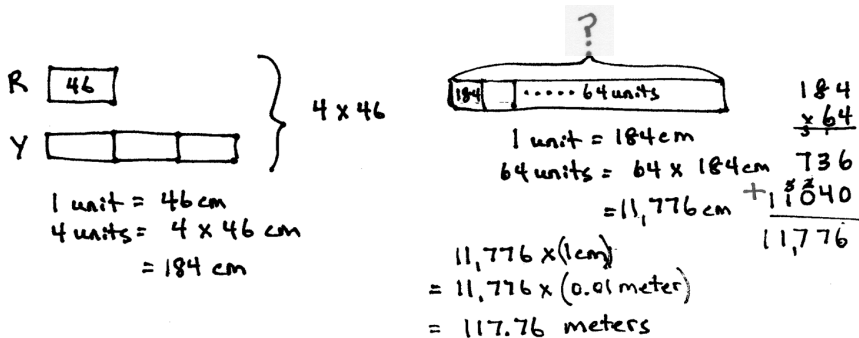 R 46
Y
4 × 46
1 unit = 46 cm
4 units = 4 × 46 cm
= 184 cm
?
184 ..... 64 units
1 unit = 184 cm
64 units = 64 × 184 cm
= 11,776 cm
11,776 × (1 cm)
= 11,776 × (0.01 meter)
= 117.76 meters
184
× 64
3 1
736
5 2
+ 11040
11,776